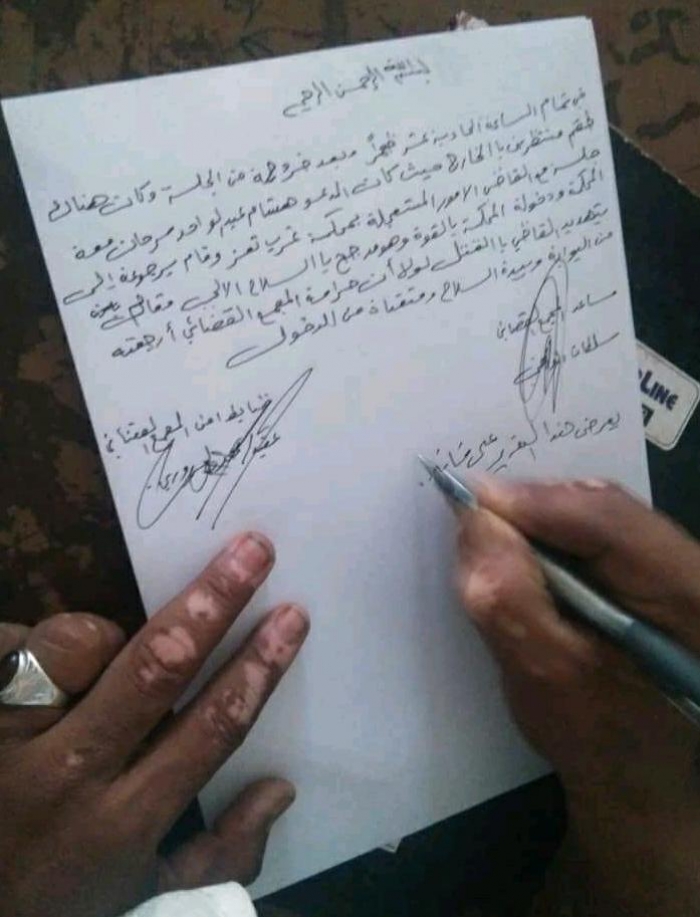 بسم الله الرحمن الرحيم
في تمام الساعة الحادية عشر ظهراً وبعد خروجه من الجلسة وكان هناك
طقم منتظرين بالخارج حيث كان المدعو هشام عبدالواحد سرحان معه
جلسة مع القاضي الامور المستعجلة بمحكمة غرب تعز وقام برجوعة إلى
المحكمة ودخولة المحكمة بالقوة وهو مدجج بالسلاح الالي وقام
بتهديد القاضي بالقتل لولا أن حراسة المجمع القضائي أرجعته
من البوابة وبيدة السلاح ومنعناه من الدخول
مساعد المجمع القضائي
سلطان
ضابط امن المجمع القضائي
عقيد
يعرض هذا التقرير على
LINE